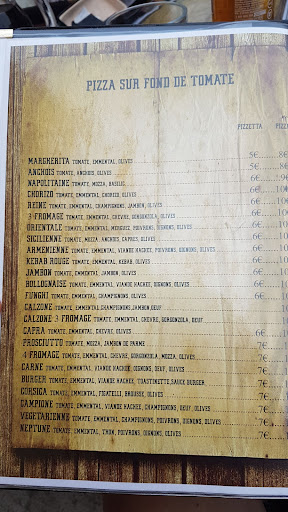 PIZZA SUR FOND DE TOMATE
PIZZETTA
MARGHERITA TOMATE, EMMENTAL, OLIVES 5€
ANCHOIS TOMATE, ANCHOIS, OLIVES 5€
NAPOLITAINE TOMATE, MOZZA, BASILIC 6€
CHORIZO TOMATE, EMMENTAL, CHORIZO, OLIVES 6€
REINE TOMATE, EMMENTAL, CHAMPIGNONS, JAMBON, OLIVES 6€
3 FROMAGE TOMATE, EMMENTAL, CHEVRE, GORGONZOLA, OLIVES 6€
ORIENTALE TOMATE, EMMENTAL, MERGUEZ, POIVRONS, OIGNONS, OLIVES 6€
SICILIENNE TOMATE, MOZZA, ANCHOIS, CAPRES, OLIVES 6€
ARMENIENNE TOMATE, EMMENTAL, VIANDE HACHEE, POIVRONS, OIGNONS, OLIVES 6€
KEBAB ROUGE TOMATE, EMMENTAL, KEBAB, OLIVES 6€
JAMBON TOMATE, EMMENTAL, JAMBON, OLIVES 6€
BOLLOGNAISE TOMATE, EMMENTAL, VIANDE HACHEE, OIGNONS, OLIVES 6€
FUNGHI TOMATE, EMMENTAL, CHAMPIGNONS, OLIVES 6€
CALZONE TOMATE, EMMENTAL, CHAMPIGNONS, JAMBON, OEUF
CALZONE 3 FROMAGE TOMATE, EMMENTAL, CHEVRE, GORGONZOLA, OEUF
CAPRA TOMATE, EMMENTAL, CHEVRE, OLIVES 6€
PROSCIUTTO TOMATE, MOZZA, JAMBON DE PARME 7€
4 FROMAGE TOMATE, EMMENTAL, CHEVRE, GORGONZOLA, MOZZA, OLIVES 7€
CARNE TOMATE, EMMENTAL, VIANDE HACHEE, OIGNONS, OEUF, OLIVES 7€
BURGER TOMATE, EMMENTAL, VIANDE HACHEE, TOASTINETTE, SAUCE BURGER 7€
CORSICA TOMATE, EMMENTAL, FIGATELLI, BROUSSE, OLIVES 7€
CAMPIONE TOMATE, EMMENTAL, VIANDE HACHEE, CHAMPIGNONS, OEUF, OLIVES 7€
VEGETARIENNE TOMATE, EMMENTAL, CHAMPIGNONS, POIVRONS, OIGNONS, OLIVES 7€
NEPTUNE TOMATE, EMMENTAL, THON, POIVRONS, OIGNONS, OLIVES 7€